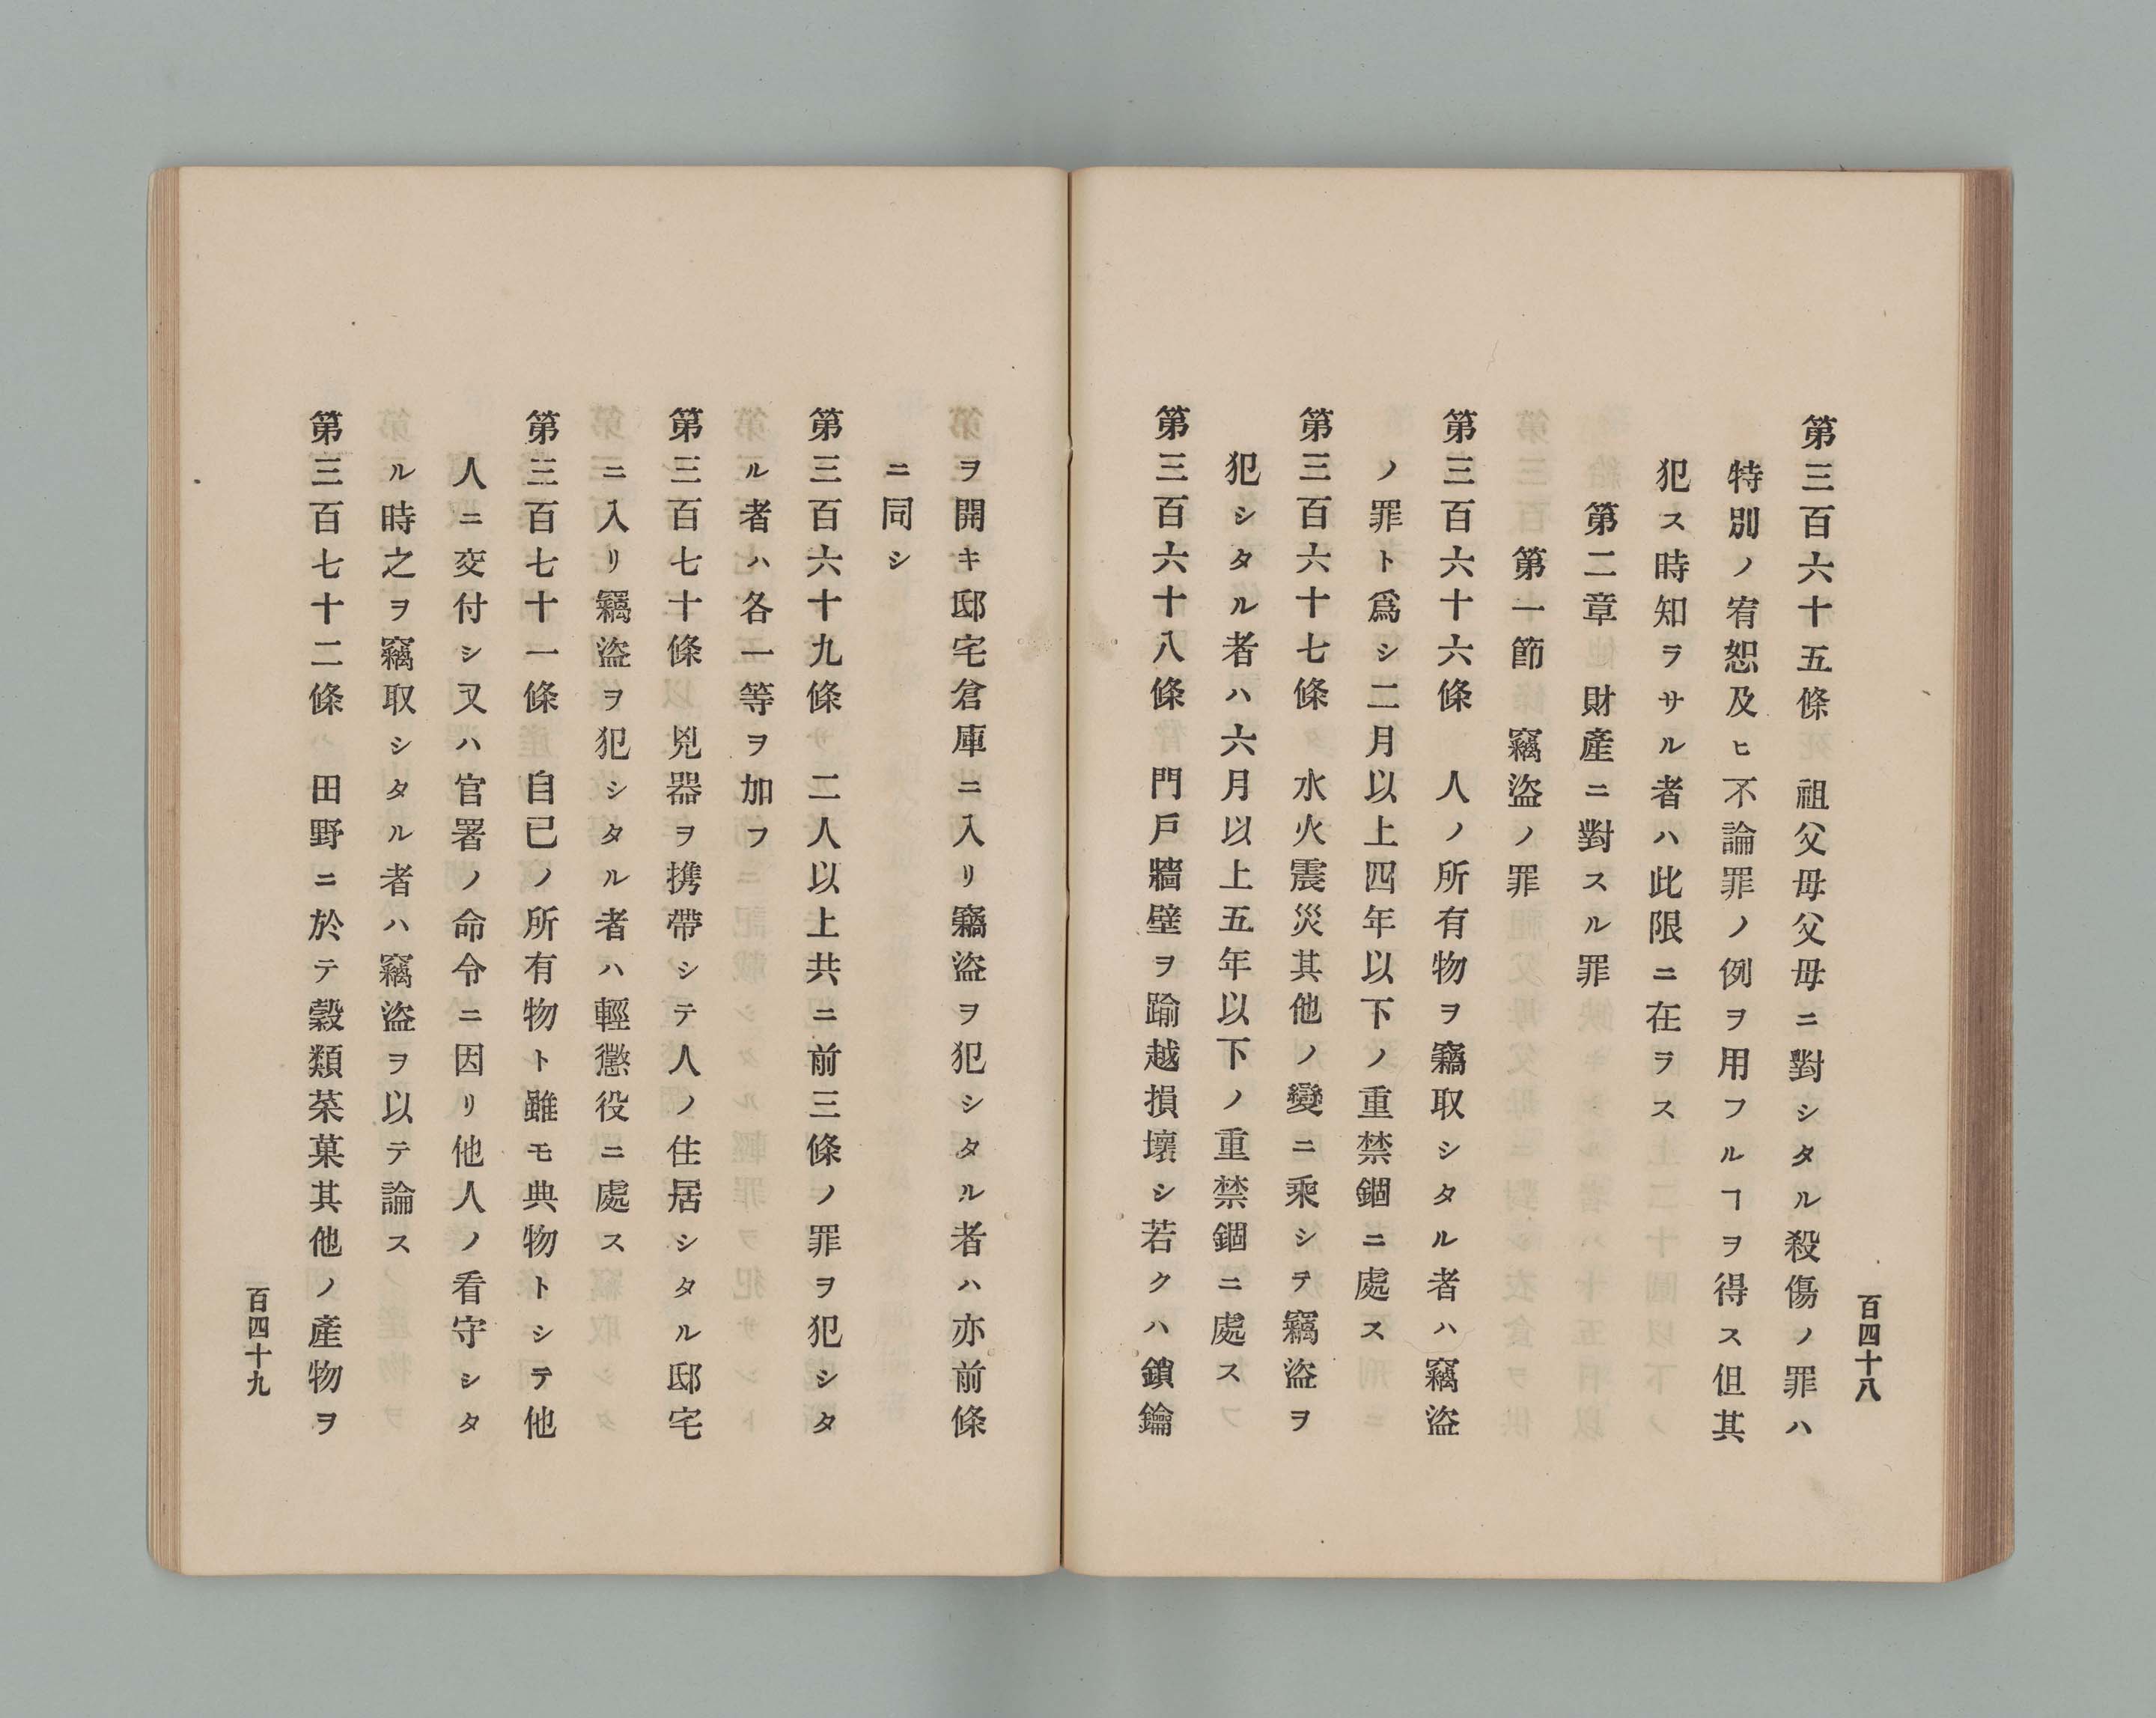 百四十八
第三百六十五條　祖父母父母ニ對シタル殺傷ノ罪ハ
特別ノ宥恕及ヒ不論罪ノ例ヲ用フルヿヲ得ス但其
犯ス時知ラサル者ハ此限ニ在ヲス
第二章　財產ニ對スル罪
第一節　竊盜ノ罪
第三百六十六條　人ノ所有物ヲ竊取シタル者ハ竊盜
ノ罪ト爲シ二月以上四年以下ノ重禁錮ニ處ス
第三百六十七條　水火震災其他ノ變ニ乘シテ竊盜ヲ
犯シタル者ハ六月以上五年以下ノ重禁錮ニ處ス
第三百六十八條　門戶牆壁ヲ踰越損壞シ若クハ鎖鑰
ヲ開キ邸宅倉庫ニ入リ竊盜ヲ犯シタル者ハ亦前條
ニ同シ
第三百六十九條　二人以上共ニ前三條ノ罪ヲ犯シタ
ル者ハ各一等ヲ加フ
第三百七十條　兇器ヲ携帶シテ人ノ住居シタル邸宅
ニ入リ竊盜ヲ犯シタル者ハ輕懲役ニ處ス
第三百七十一條　自己ノ所有物ト雖モ典物トシテ他
人ニ交付シ又ハ官署ノ命令ニ因リ他人ノ看守シタ
ル時之ヲ竊取シタル者ハ竊盜ヲ以テ論ス
第三百七十二條　田野ニ於テ穀類菜菓其他ノ產物ヲ
百四十九